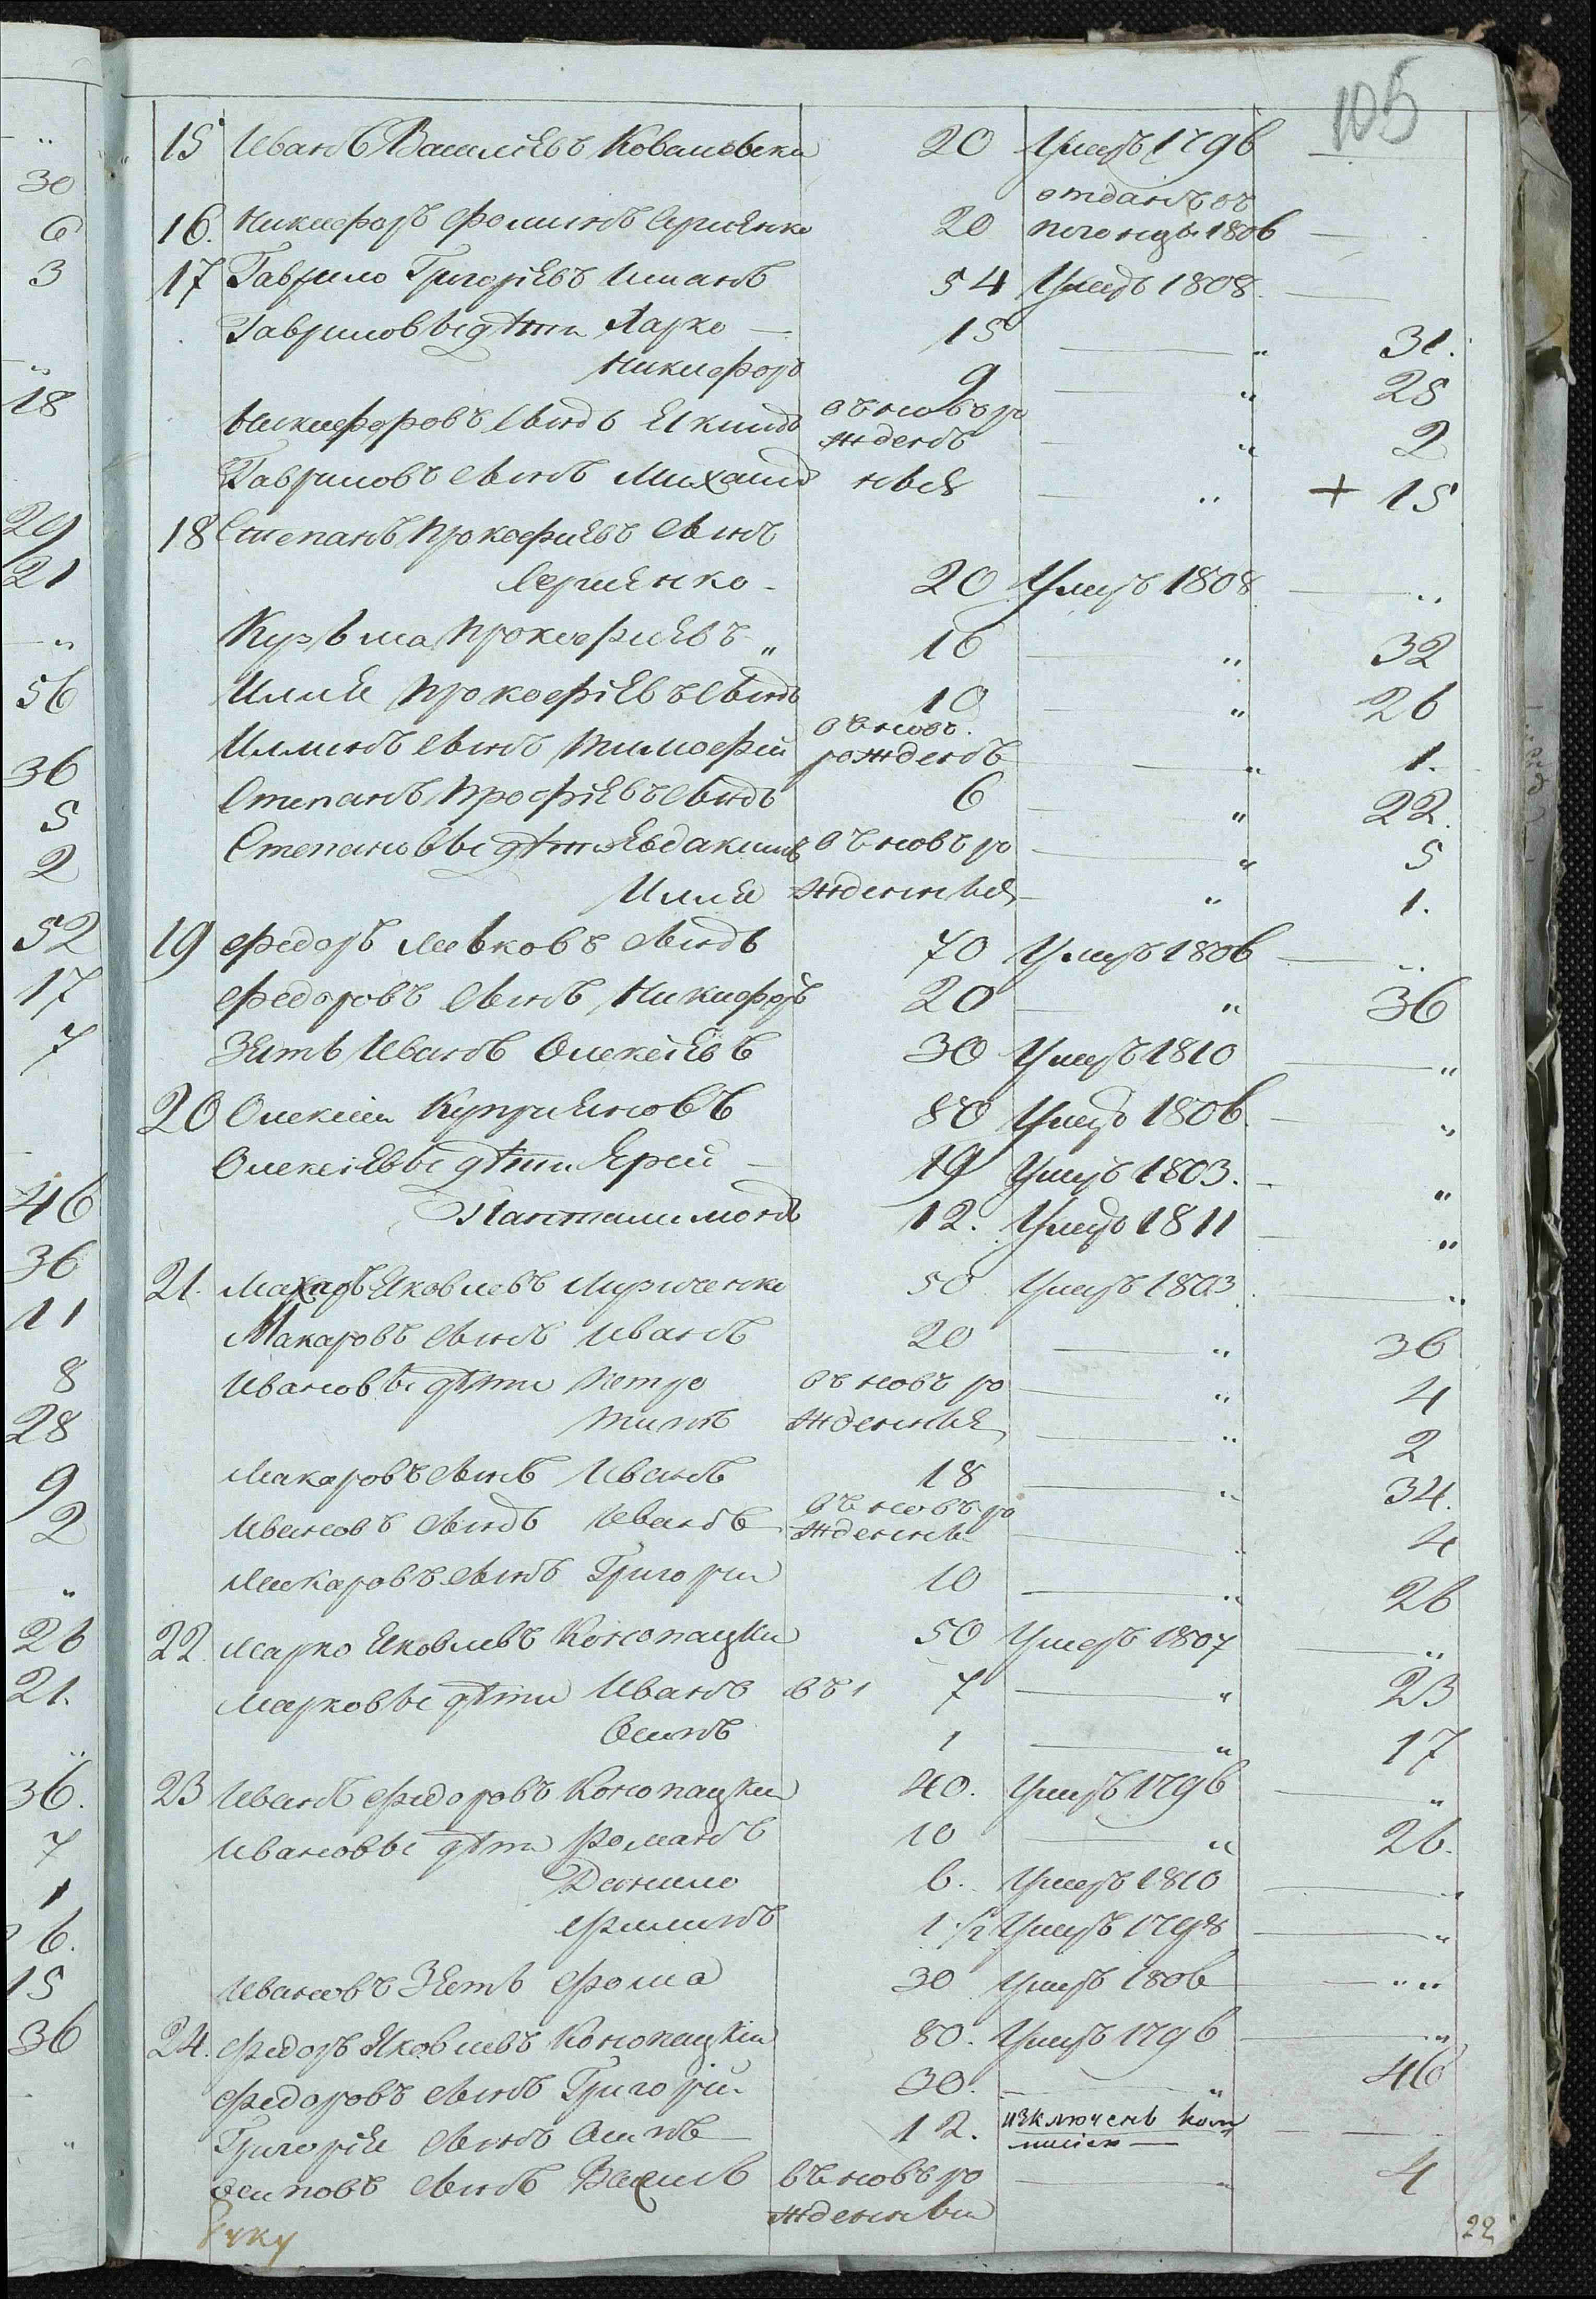 105
15 Иванъ Василіевъ Ковалевски 20 Умеръ 1796
отданъ въ
16. Никифоръ Фоминъ Сергіенко 20 1806
17 Гаврило Григоріевъ 54 Умеръ 1808
Гавриловы дѣти Марко 15 " 31.
Никифоръ 9 " 25
Никифоровъ сынъ Екимъ въновъ ро
жденъ " 2
Гавриловъ сынъ Михаилъ ный " + 15
18 Степанъ Прокофиевъ сынъ
Сергиенко 20 Умеръ 1808 "
Кузьма Прокофиевъ " 16 " 32
Илия Прокофіевъ сынъ 10 " 26
Илминъ сынъ Тимофей въновъ.
рожденъ " 1.
Степанъ Профіевъ сынъ 6 " 22.
Степановы дѣти Евдакимъ въновъ ро " 5
Илия жденныя " 1.
19 Федоръ Левковъ сынъ 70 Умеръ 1806 "
Федоровъ сынъ Никифоръ 20 " 36
Зять Иванъ Олексіевъ 30 Умеръ 1810 "
20 Олексіи Куприяновъ 80 Умеръ 1806. "
Олексіевы дѣти Ярей 19 Умеръ 1803. "
Пантелимонъ 12. Умеръ 1811 "
21. Макаръ Яковлевъ Кириченко 50 Умеръ 1803 "
Макаровъ сынъ Иванъ 20 " 36
Ивановы дѣти Петро въновъ ро " 4
Титъ жденныя " 2
Макаровъ сынъ Иванъ 18 " 34.
Ивановъ сынъ Иванъ въновъ ро
жденны " 4
Макаровъ сынъ Григори 10 " 26
22. Марко Яковлевъ Конопацки 50 Умеръ 1807 "
Марковы дѣти Иванъ 7 " 23
Осипъ 1 " 17
23 Иванъ Федоровъ Конопацки 40. Умеръ 1796 "
Ивановы дѣти Романъ 10 " 26.
Данило 6. Умеръ 1810 "
Филипъ 1 1/2 Умеръ 1798 "
Ивановъ Зять Фома 30 Умеръ 1806 " "
24. Федоръ Яковлевъ Конопацкіи 80. Умеръ 1796 "
Федоровъ сынъ Григорій 30. " 46
Григорія сынъ Осипъ 12. изключенъ ком
мисіею
Осиповъ сынъ Василь въновъ ро " 4
жденныи
22